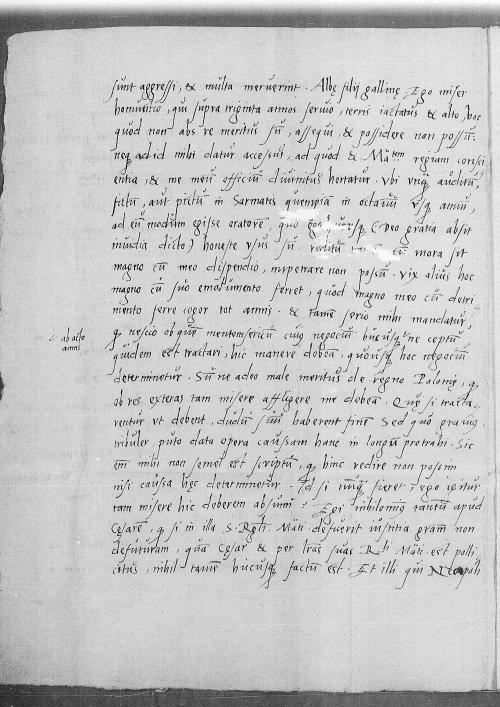 sunt aggressi, & multa meruerint. Albę filij gallinę, Ego miser
homuntio, qui supra triginta annos seruio, terris iactatus & alto, hoc
quod non abs re meritus sũ, assequi, & possidere non possũ.
neq ad id mihi datur accessus, ad quod & Mã regiam consci
entia, & me meũ officiũ diuinitus hortatur. Vbi vnq auditũ,
fictũ, aut pictũ in Sarmatis quempiã in octauũ vsq annũ,
ad eũ modum egisse oratorẽ, quo (Deo gratia absit
inuidia dicto) honeste vsus sũ. reditũ cũ mora sit
magno cũ meo dispendio, impetrare non possũ. Vix alius hoc
magno cũ suo emolumento ferret, quod magno meo cũ detri
mento ferre cogor tot annis. & tamẽ serio mihi mandatur,
ab octo
annis
q nescio ob quẽ negociũ hucusq ne ceptũ
quidem est tractari, hic manere debeã, quousq hoc negociũ
determinetur. Sũ ne adeo male meritus de regno Polonię, q
ob res exteras tam misere affligere me debeã. Quę si tracta
rentur vt debent, dudũ suũ haberent finẽ. Sed quo prauis
tribuler, puto data opera causam hanc in longũ protrahi. Sic
em̃ mihi non semel est scriptũ, q hinc redire non possim
nisi causa hęc determinetur. Id si nunq fieret, ego igitur
tam misere hic deberem absumi? Egi nihilominq tantũ apud
Cęsarẽ, q si in illa S. Mati defuerit iustitia gram non
defuturam, quã Cęsar & per lras suas Mati est polli
citus, nihil tamẽ hucusq factũ est. Et illi qui Neapoli